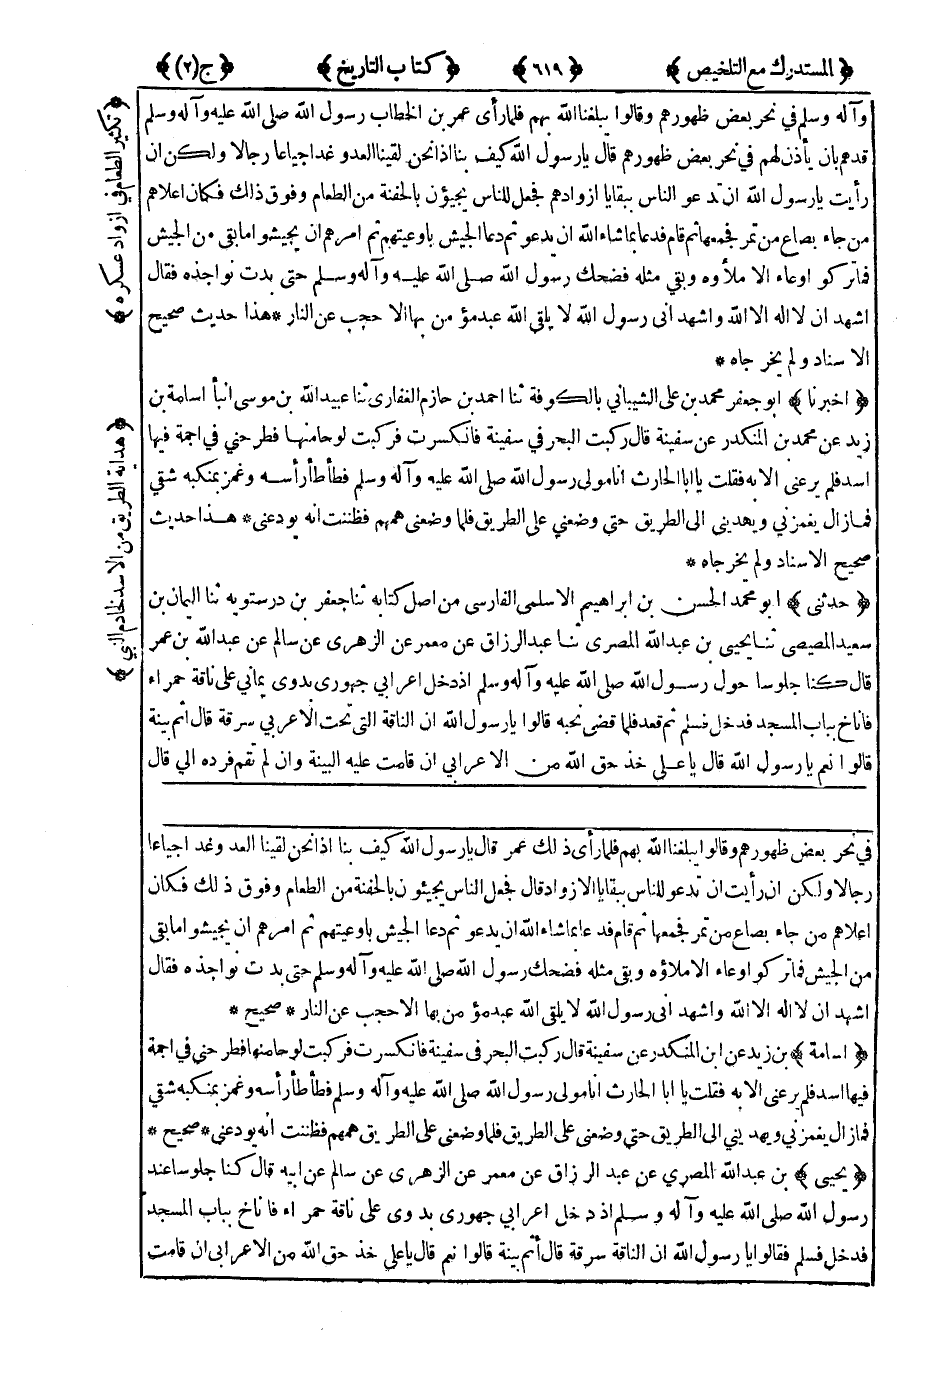 ﴿ المستدرك مع التلخيص ﴾ ﴿ ٦١٩ ﴾ ﴿ كتاب التاريخ ﴾ ﴿ ج (٢) ﴾
وآله وسلم في نحر بعض ظهورهم وقالوا يبلغنا الله بهم فلما رأى عمر بن الخطاب رسول الله صلى الله عليه وآله وسلم
قد هم بان يأذن لهم في نحر بعض ظهورهم قال يارسول الله كيف بنا اذا نحن لقينا العدو غدا جياعا رجالا ولكن ان
رأيت يارسول الله ان تدعو الناس ببقايا ازوادهم فجعل للناس يجيؤن بالحفنة من الطعام وفوق ذلك فكان اعلاهم
من جاء بصاع من تمر فجمعها ثم قام فدعا بما شاء الله ان يدعو ثم دعا الجيش باوعيتهم ثم امرهم ان يحيشوا مابقي من الجيش
فما تركوا وعاء الا ملأوه وبقي مثله فضحك رسول الله صلى الله عليه وآله وسلم حتى بدت نواجذه فقال
اشهد ان لا اله الا الله واشهد انى رسول الله لا يلقى الله عبد مؤمن بها الا حجب عن النار * هذا حديث صحيح
الاسناد ولم يخرجاه *
﴿ اخبرنا ﴾ ابو جعفر محمد بن على الشيباني بالكوفة ثنا احمد بن حازم الغفارى ثنا عبيد الله بن موسى انبأ اسامة بن
زيد عن محمد بن المنكدر عن سفينة قال ركبت البحر في سفينة فانكسرت فركبت لوحا منها فطرحني في اجمة فيها
اسد فلم يرعنى الا به فقلت يا ابا الحارث انا مولى رسول الله صلى الله عليه وآله وسلم فطأطأ رأسه وغمز بمنكبه شقي
فما زال يغمزني ويهديني الى الطريق حتى وضعني على الطريق فلما وضعنى همهم فظننت انه يودعنى * هذا حديث
صحيح الاسناد ولم يخرجاه *
﴿ حدثنى ﴾ ابو محمد الحسن بن ابراهيم الاسلمى الفارسى من اصل كتابه ثنا جعفر بن درستويه ثنا اليمان بن
سعيد المصيصى ثنا يحيى بن عبد الله المصرى ثنا عبد الرزاق عن معمر عن الزهرى عن سالم عن عبد الله بن عمر
قال كنا جلوسا حول رسول الله صلى الله عليه وآله وسلم اذ دخل اعرابي جهورى بدوى يمانى على ناقة حمراء
فاناخ بباب المسجد فدخل فسلم ثم قعد فلما قضى نحبه قالوا يارسول الله ان الناقة التى تحت الاعربي سرقة قال أثم بينة
قالوا نعم يارسول الله قال ياعلى خذ حق الله من الاعرابي ان قامت عليه البينة وان لم تقم فرده الي قال
في نحر بعض ظهورهم وقالوا يبلغنا الله بهم فلما رأى ذلك عمر قال يارسول الله كيف بنا اذا نحن لقينا العد وغد اجياعا
رجالا ولكن ان رأيت ان تدعو للناس ببقايا الازواد قال فجعل الناس يجيئون بالحفنة من الطعام وفوق ذلك فكان
اعلاهم من جاء بصاع من تمر فجمعها ثم قام فدعا بما شاء الله ان يدعو ثم دعا الجيش باوعيتهم ثم امرهم ان يحيشوا مابقى
من الجيش فما تركوا وعاء الا ملاؤه وبقى مثله فضحك رسول الله صلى الله عليه وآله وسلم حتى بدت نواجذه فقال
اشهد ان لا اله الا الله واشهد انى رسول الله لا يلقى الله عبد مؤمن بها الا حجب عن النار * صحيح *
﴿ اسامة ﴾ بن زيد عن ابن المنكدر عن سفينة قال ركبت البحر في سفينة فانكسرت فركبت لوحا منها فطرحنى في اجمة
فيها اسد فلم يرعنى الا به فقلت يا ابا الحارث انا مولى رسول الله صلى الله عليه وآله وسلم فطأطأ رأسه وغمز بمنكبه شقي
فما زال يغمزني ويهديني الى الطريق حتى وضعنى على الطريق فلما وضعنى على الطريق همهم فظننت انه يودعنى * صحيح *
﴿ يحيى ﴾ بن عبد الله المصري عن عبد الرزاق عن معمر عن الزهرى عن سالم عن ابيه قال كنا جلوسا عند
رسول الله صلى الله عليه وآله وسلم اذ دخل اعرابي جهورى بدوى على ناقة حمراء فاناخ بباب المسجد
فدخل فسلم فقالوا يا رسول الله ان الناقة سرقة قال أثم بينة قالوا نعم قال يا على خذ حق الله من الاعرابى ان قامت
﴿ تكثير الطعام في ازواد عسكره ﴾
﴿ هداية الطريق من الاسد لخادم النبي ﴾